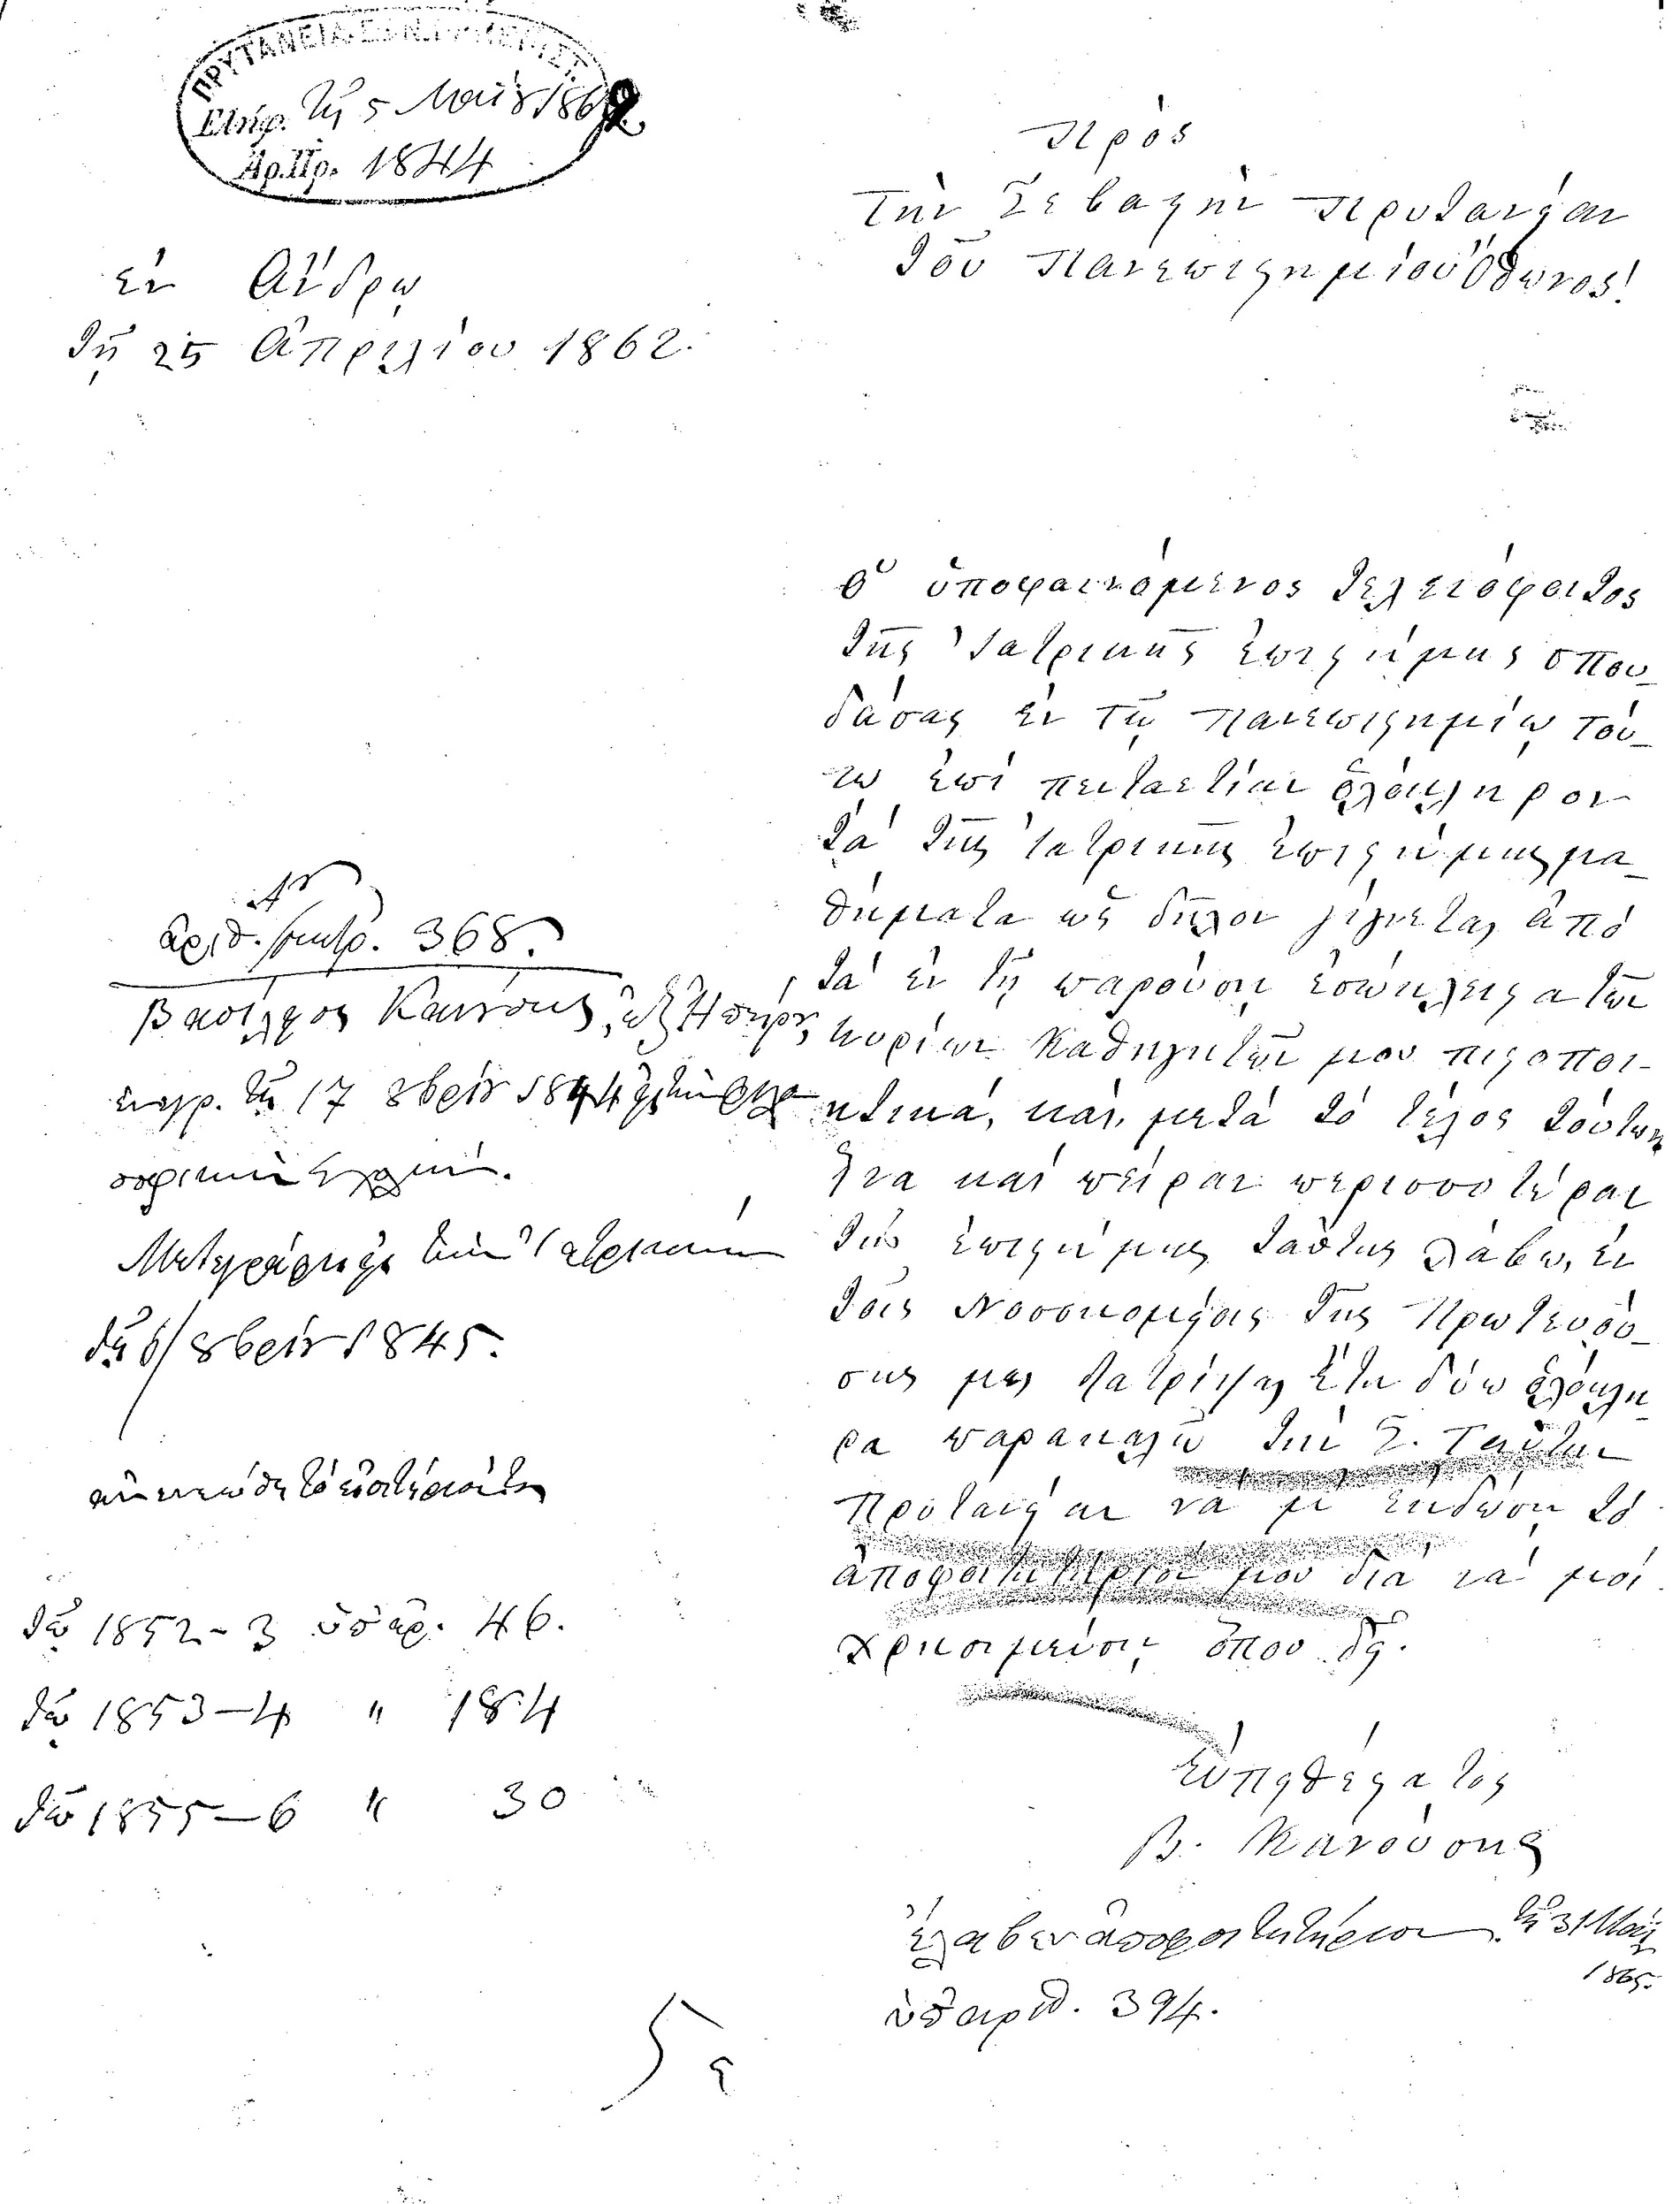 ΠΡΥΤΑΝΕΙΑ ΕΘΝ. ΠΑΝΕΠΙΣΤ.
Ελήφ. τῇ 5 Μαΐου 1862
Ἀρ. Πρ. 1844
ἐν Ἄνδρῳ
τῇ 25 Ἀπριλίου 1862.
Πρὸς
Τὴν Σεβαστὴν Πρυτανείαν
τοῦ Πανεπιστημίου Ὄθωνος!
Ὁ ὑποφαινόμενος τελειόφοιτος
τῆς Ἰατρικῆς ἐπιστήμης σπου-
δάσας ἐν τῷ Πανεπιστημίῳ τού-
τῳ ἐπὶ πενταετίαν ὁλόκληρον
τὰ τῆς ἰατρικῆς ἐπιστήμης μα-
θήματα ὡς δῆλον γίγνεται ἀπὸ
τὰ ἐν τῇ παρούσῃ ἐσώκλειστα τῶν
κυρίων Καθηγητῶν μου πιστοποι-
ητικά, καὶ, μετὰ τὸ τέλος τούτων
ἵνα καὶ πεῖραν περισσοτέραν
τῆς ἐπιστήμης ταύτης λάβω, ἐν
τοῖς Νοσοκομείοις τῆς Πρωτευού-
σης μας διατρίψας ἔτη δύω ὁλόκλη-
ρα παρακαλῶ τὴν Σ. Ταύτην
Πρυτανείαν νὰ μὲ ἐκδώσῃ τὸ
ἀποφοιτητήριόν μου διὰ νὰ μοὶ
χρησιμεύσῃ ὅπου δεῖ.
Εὐπειθέστατος
Β. Κανούσης
ἔλαβεν ἀποφοιτητήριον τῇ 31 Μαΐου
1865.
ὑπ' ἀριθ. 394.
ἀριθ. μητρ. 368.
Βασίλειος Κανούσης, ἐξ Ἠπείρου,
ἐνεγρ. τῇ 17 8βρίου 1844 εἰς τὴν Φιλο-
σοφικὴν Σχολήν.
Μετεγράφη εἰς τὴν Ἰατρικὴν
τῇ 6/8βρίου 1845.
ἀνενεώθη τὸ εἰσιτήριον
τῷ 1852-3 ὑπ' ἀρ. 46.
τῷ 1853-4 " 184
τῷ 1855-6 " 30